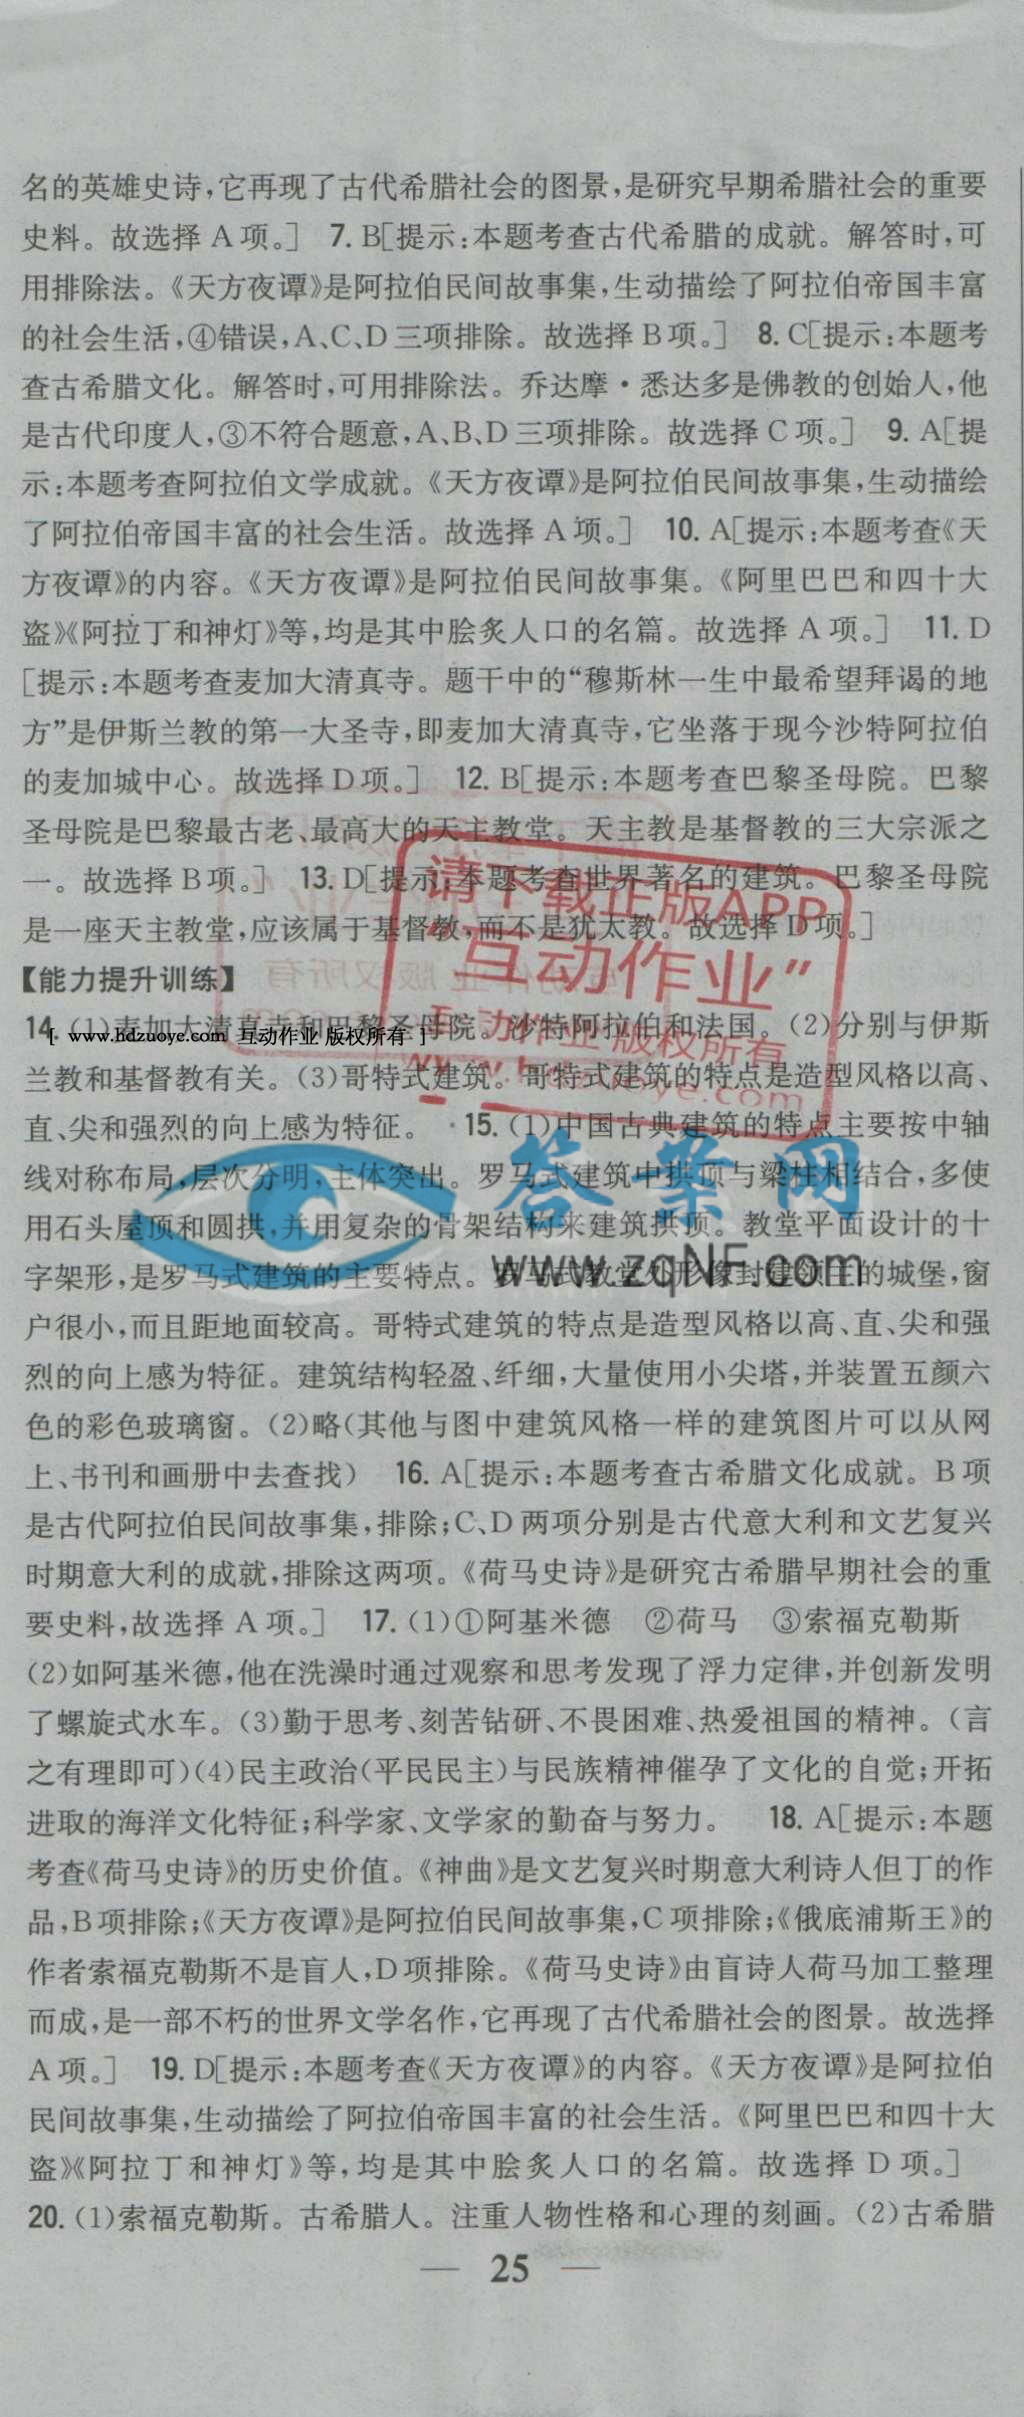 名的英雄史诗,它再现了古代希腊社会的图景,是研究早期希腊社会的重要
史料。故选择 A 项。] 7. B[提示:本题考查古代希腊的成就。解答时,可
用排除法。《天方夜谭》是阿拉伯民间故事集,生动描绘了阿拉伯帝国丰富
的社会生活,④错误,A、C、D 三项排除。故选择 B 项。] 8. C[提示:本题考
查古希腊文化。解答时,可用排除法。乔达摩·悉达多是佛教的创始人,他
是古代印度人,③不符合题意,A、B、D 三项排除。故选择 C 项。] 9. A[提
示:本题考查阿拉伯文学成就。《天方夜谭》是阿拉伯民间故事集,生动描绘
了阿拉伯帝国丰富的社会生活。故选择 A 项。] 10. A[提示:本题考查《天
方夜谭》的内容。《天方夜谭》是阿拉伯民间故事集。《阿里巴巴和四十大
盗》《阿拉丁和神灯》等,均是其中脍炙人口的名篇。故选择 A 项。] 11. D
[提示:本题考查麦加大清真寺。题干中的“穆斯林一生中最希望拜谒的地
方”是伊斯兰教的第一大圣寺,即麦加大清真寺,它坐落于现今沙特阿拉伯
的麦加城中心。故选择 D 项。] 12. B[提示:本题考查巴黎圣母院。巴黎
圣母院是巴黎最古老、最高大的天主教堂。天主教是基督教的三大宗派之
一。故选择 B 项。] 13. D[提示:本题考查世界著名的建筑。巴黎圣母院
是一座天主教堂,应该属于基督教,而不是犹太教。故选择 D 项。]
请下载正版APP
“互动作业”
互动作业 版权所有
【能力提升训练】
14. (1)麦加大清真寺和巴黎圣母院。沙特阿拉伯和法国。(2)分别与伊斯
[ www.hdzuoye.com 互动作业 版权所有 ]
兰教和基督教有关。(3)哥特式建筑。哥特式建筑的特点是造型风格以高、
直、尖和强烈的向上感为特征。 15. (1)中国古典建筑的特点主要按中轴
线对称布局,层次分明,主体突出。罗马式建筑中拱顶与梁柱相结合,多使
答案网
用石头屋顶和圆拱,并用复杂的骨架结构来建筑拱顶。教堂平面设计的十
www.zqNF.com
字架形,是罗马式建筑的主要特点。罗马式教堂外形像封建领主的城堡,窗
户很小,而且距地面较高。哥特式建筑的特点是造型风格以高、直、尖和强
烈的向上感为特征。建筑结构轻盈、纤细,大量使用小尖塔,并装置五颜六
色的彩色玻璃窗。(2)略(其他与图中建筑风格一样的建筑图片可以从网
上、书刊和画册中去查找) 16. A[提示:本题考查古希腊文化成就。B 项
是古代阿拉伯民间故事集,排除;C、D 两项分别是古代意大利和文艺复兴
时期意大利的成就,排除这两项。《荷马史诗》是研究古希腊早期社会的重
要史料,故选择 A 项。] 17. (1)①阿基米德 ②荷马 ③索福克勒斯
(2)如阿基米德,他在洗澡时通过观察和思考发现了浮力定律,并创新发明
了螺旋式水车。(3)勤于思考、刻苦钻研、不畏困难、热爱祖国的精神。(言
之有理即可)(4)民主政治(平民民主)与民族精神催孕了文化的自觉;开拓
进取的海洋文化特征;科学家、文学家的勤奋与努力。 18. A[提示:本题
考查《荷马史诗》的历史价值。《神曲》是文艺复兴时期意大利诗人但丁的作
品,B 项排除;《天方夜谭》是阿拉伯民间故事集,C 项排除;《俄底浦斯王》的
作者索福克勒斯不是盲人,D 项排除。《荷马史诗》由盲诗人荷马加工整理
而成,是一部不朽的世界文学名作,它再现了古代希腊社会的图景。故选择
A 项。] 19. D[提示:本题考查《天方夜谭》的内容。《天方夜谭》是阿拉伯
民间故事集,生动描绘了阿拉伯帝国丰富的社会生活。《阿里巴巴和四十大
盗》《阿拉丁和神灯》等,均是其中脍炙人口的名篇。故选择 D 项。]
20. (1)索福克勒斯。古希腊人。注重人物性格和心理的刻画。(2)古希腊
— 25 —